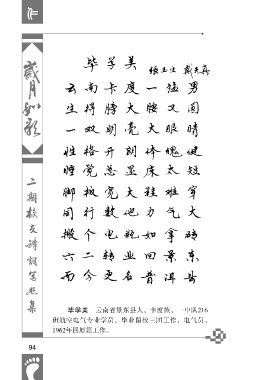 作
岁月如歌
二期校友诗词书画集
毕学美
云南卡度一猛男
生得膀大腰又圆
一双明亮大眼睛
性格开朗体魄健
睡觉总显床太短
脚板宽大鞋难穿
同行数他力气大
搬个电瓶如拿砖
六二转业回景东
而今更名普洱县
毕学美 云南省景东县人，卡度族，一中队216
班航空电气专业学员，毕业留校三团工作，电气员，
1962年回原籍工作。
94